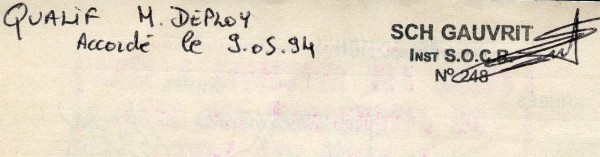 QUALIF M. DEPLOY
Accordé le 9.05.94
SCH GAUVRIT
INST S.O.C.R.
N° 248